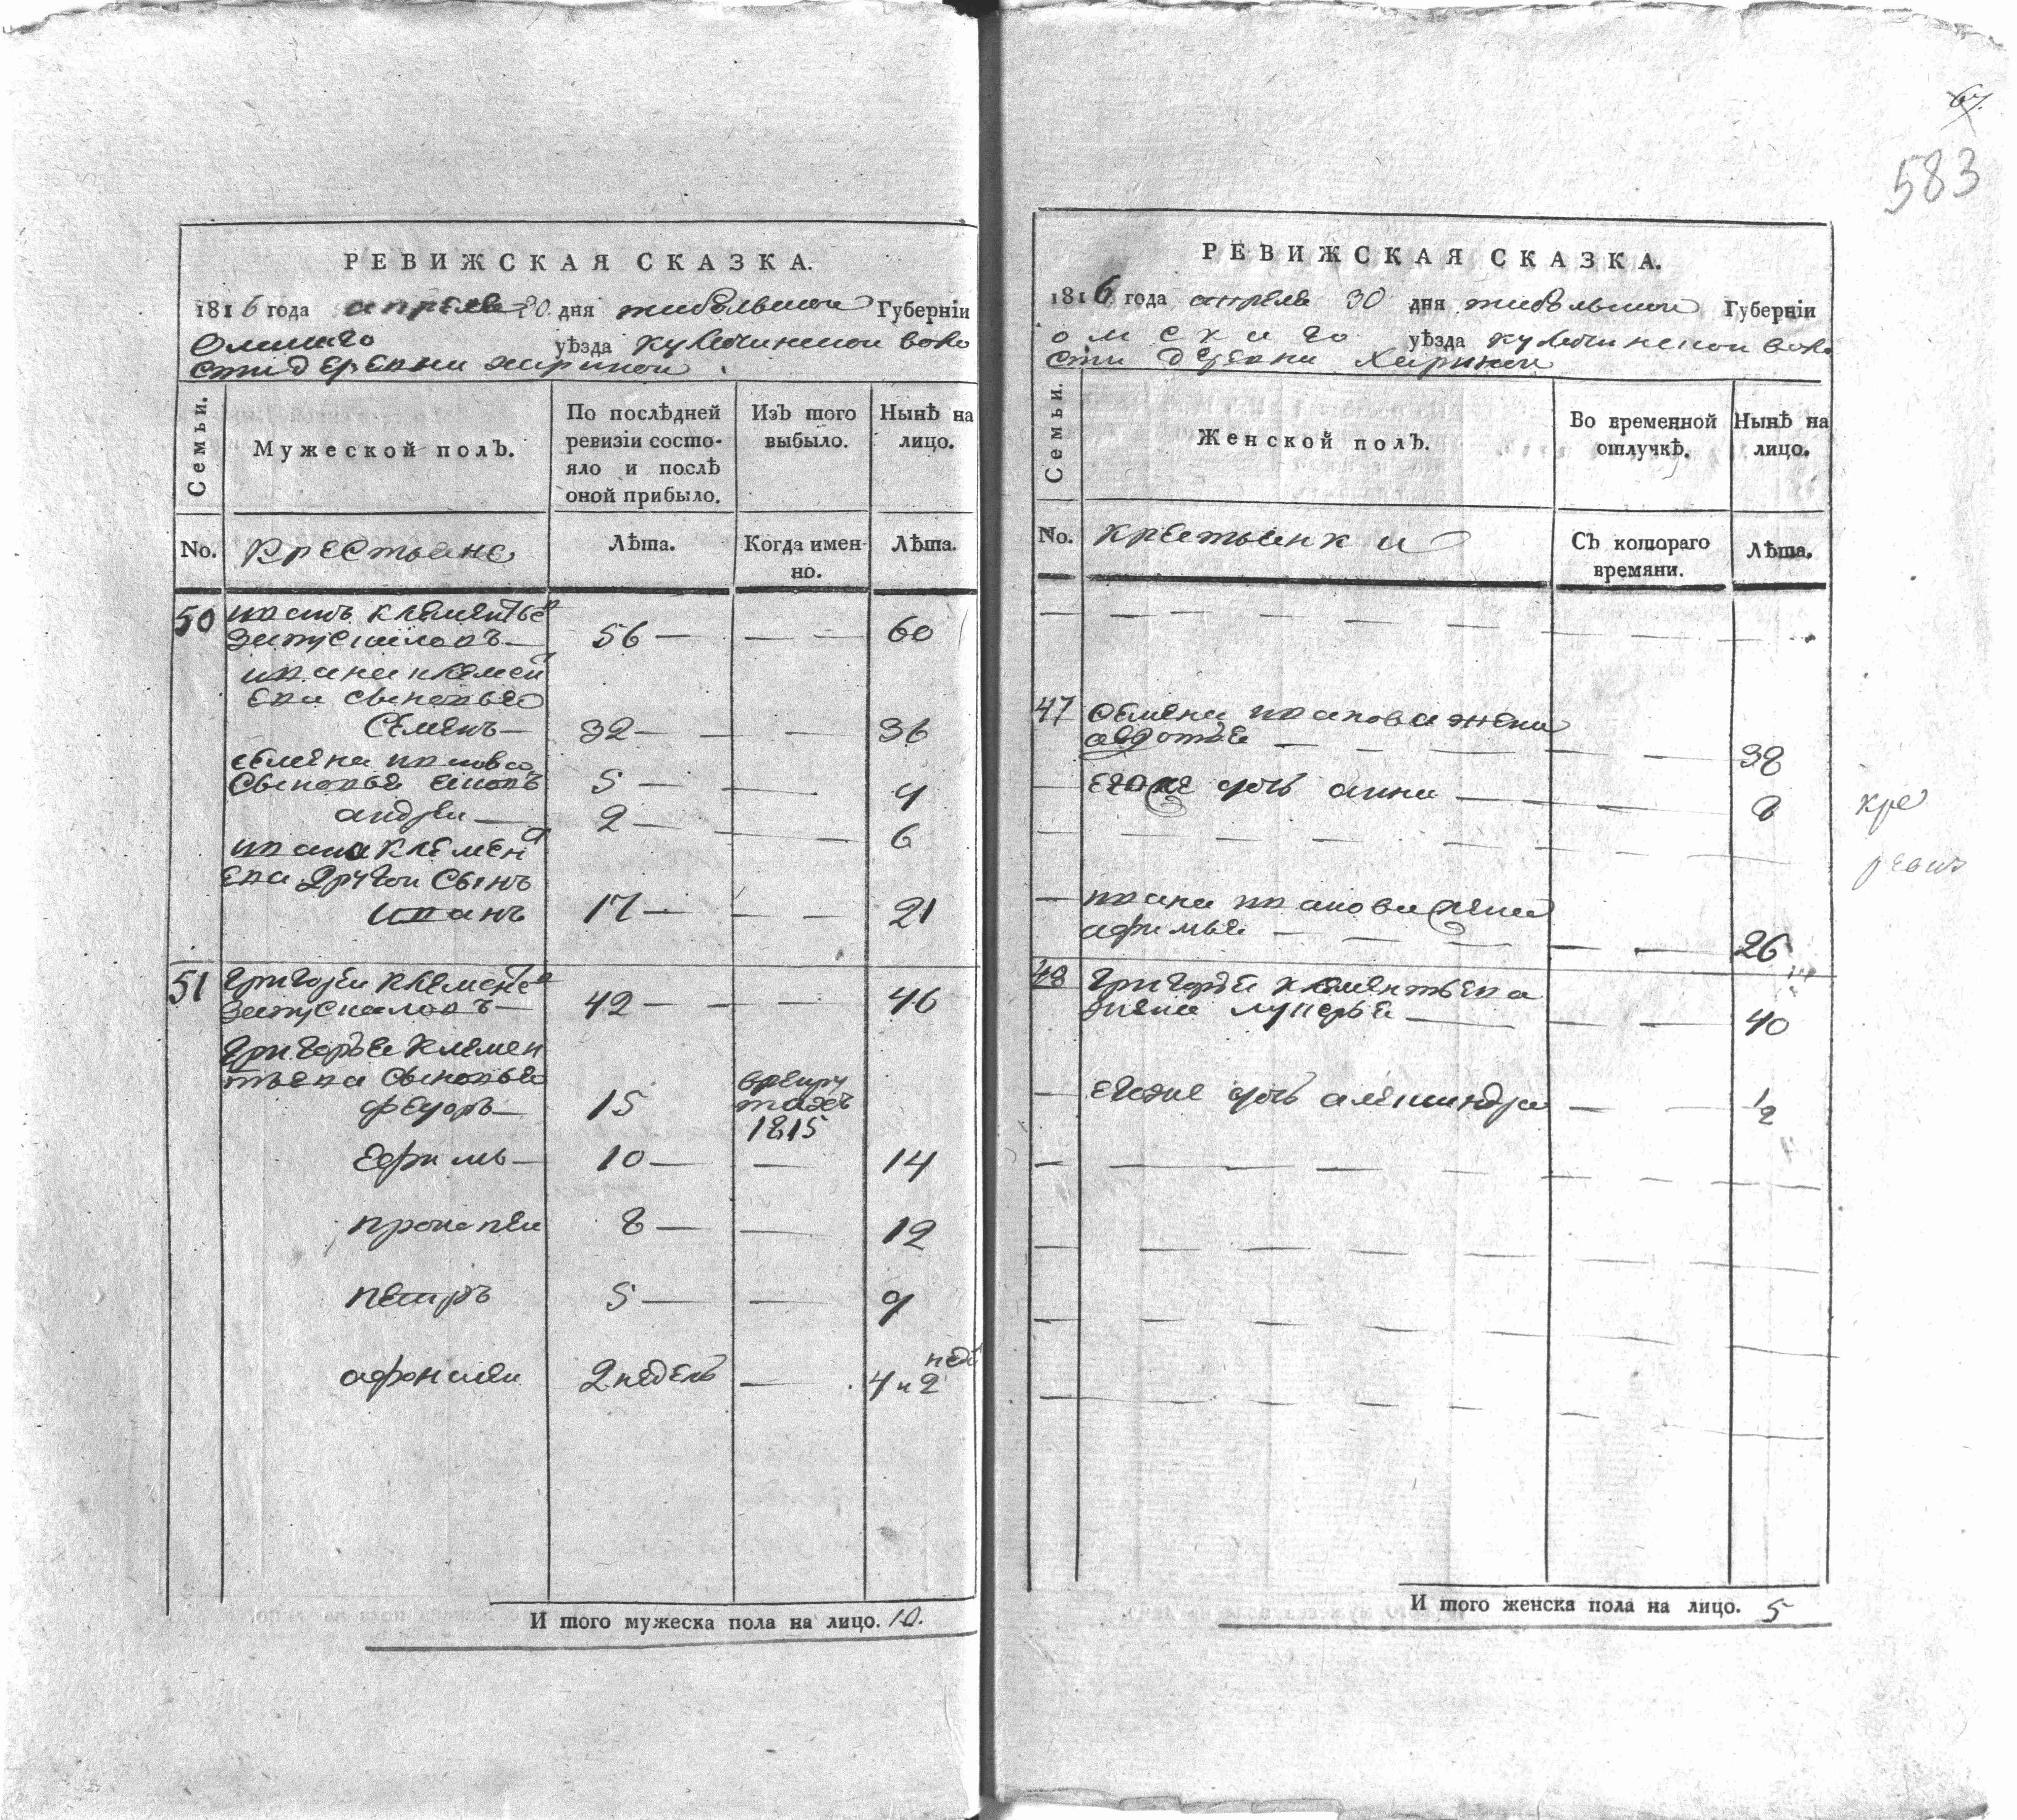 РЕВИЖСКАЯ СКАЗКА.
1816 года апреля 30 дня тобольской Губерніи
Омскаго уѣзда кулачинской воло
сти деревни хариной
Семьи.
Мужеской полъ.
По послѣдней
ревизіи состо-
яло и послѣ
оной прибыло.
Изъ того
выбыло.
Нынѣ на
лицо.
No.
Крестьяне
Лѣта.
Когда имен-
но.
Лѣта.
50 иванъ клементьев
запускаловъ — 56 — — — 60
ивана клемен
ева сыновья
Семенъ — 32 — — — 36
семена иванова
Сыновья 5 — — 9
андреи — 2 — — 6
ивана клемен
ева другои Сынъ
иванъ 17 — — — 21
51 григореи клементев
запускаловъ — 42 — — — 46
григорья клемен
тьева сыновья
федоръ — 15
в рекру
тахъ
1815
ефимъ — 10 — — 14
прокопеи 8 — — 12
петръ 5 — — 9
афонасеи 2 недель — 4 и 2 нед
И того мужеска пола на лицо. 10.
67.
583
РЕВИЖСКАЯ СКАЗКА.
1816 года апреля 30 дня тобольской Губерніи
омскаго уѣзда кулачинской воло
сти деревни Хариной
Семьи.
Женской полъ.
Во временной
отлучкѣ.
Нынѣ на
лицо.
No.
крестьянки
Съ котораго
времяни.
Лѣта.
47 Семена иванова жена
авдотья — — — 38
— его же дочь анна — — — 8
— ивана иванова жена
афимья — — — 26
48 григорья клементьева
жена лукерья — — — 40
— его же дочь александра — — 1/2
И того женска пола на лицо. 5
кре